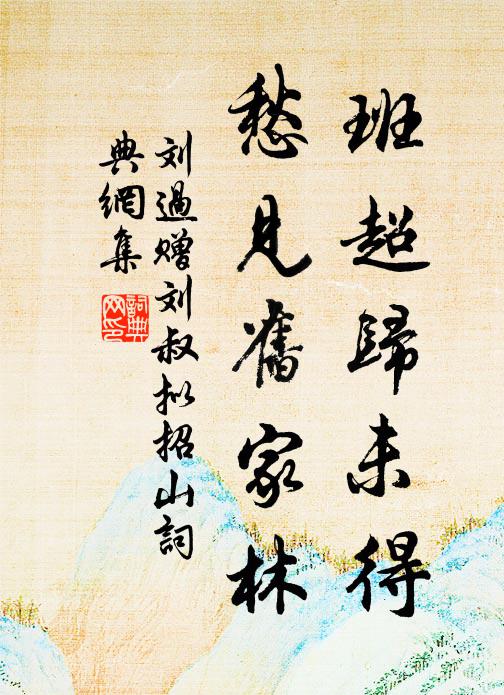 班超歸未得
愁見舊家林
刘過赠刘叔拟招山詞
典網集
詞典
网印